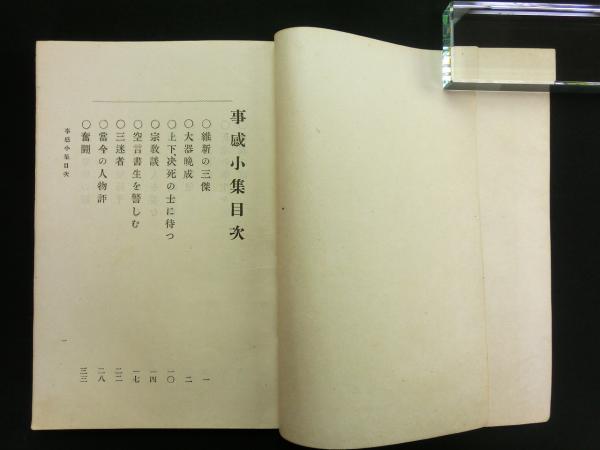 事感小集目次
○維新の三傑 一
○大器晩成 二
○上下、決死の士に待つ 一〇
○宗教談 一四
○空言書生を警しむ 一七
○三迷者 二二
○當今の人物評 二八
○奮鬪 三三
事感小集目次
一